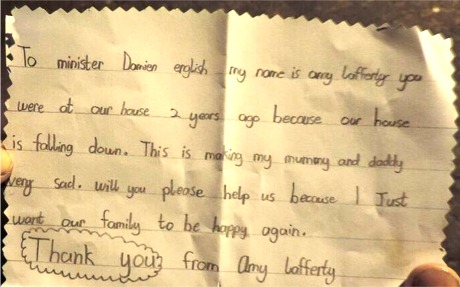 To minister Damien english my name is amy lafferty you
were at our house 2 years ago because our house
is falling down. This is making my mummy and daddy
very sad. will you please help us because I Just
want our family to be happy again.
Thank you? from Amy Lafferty